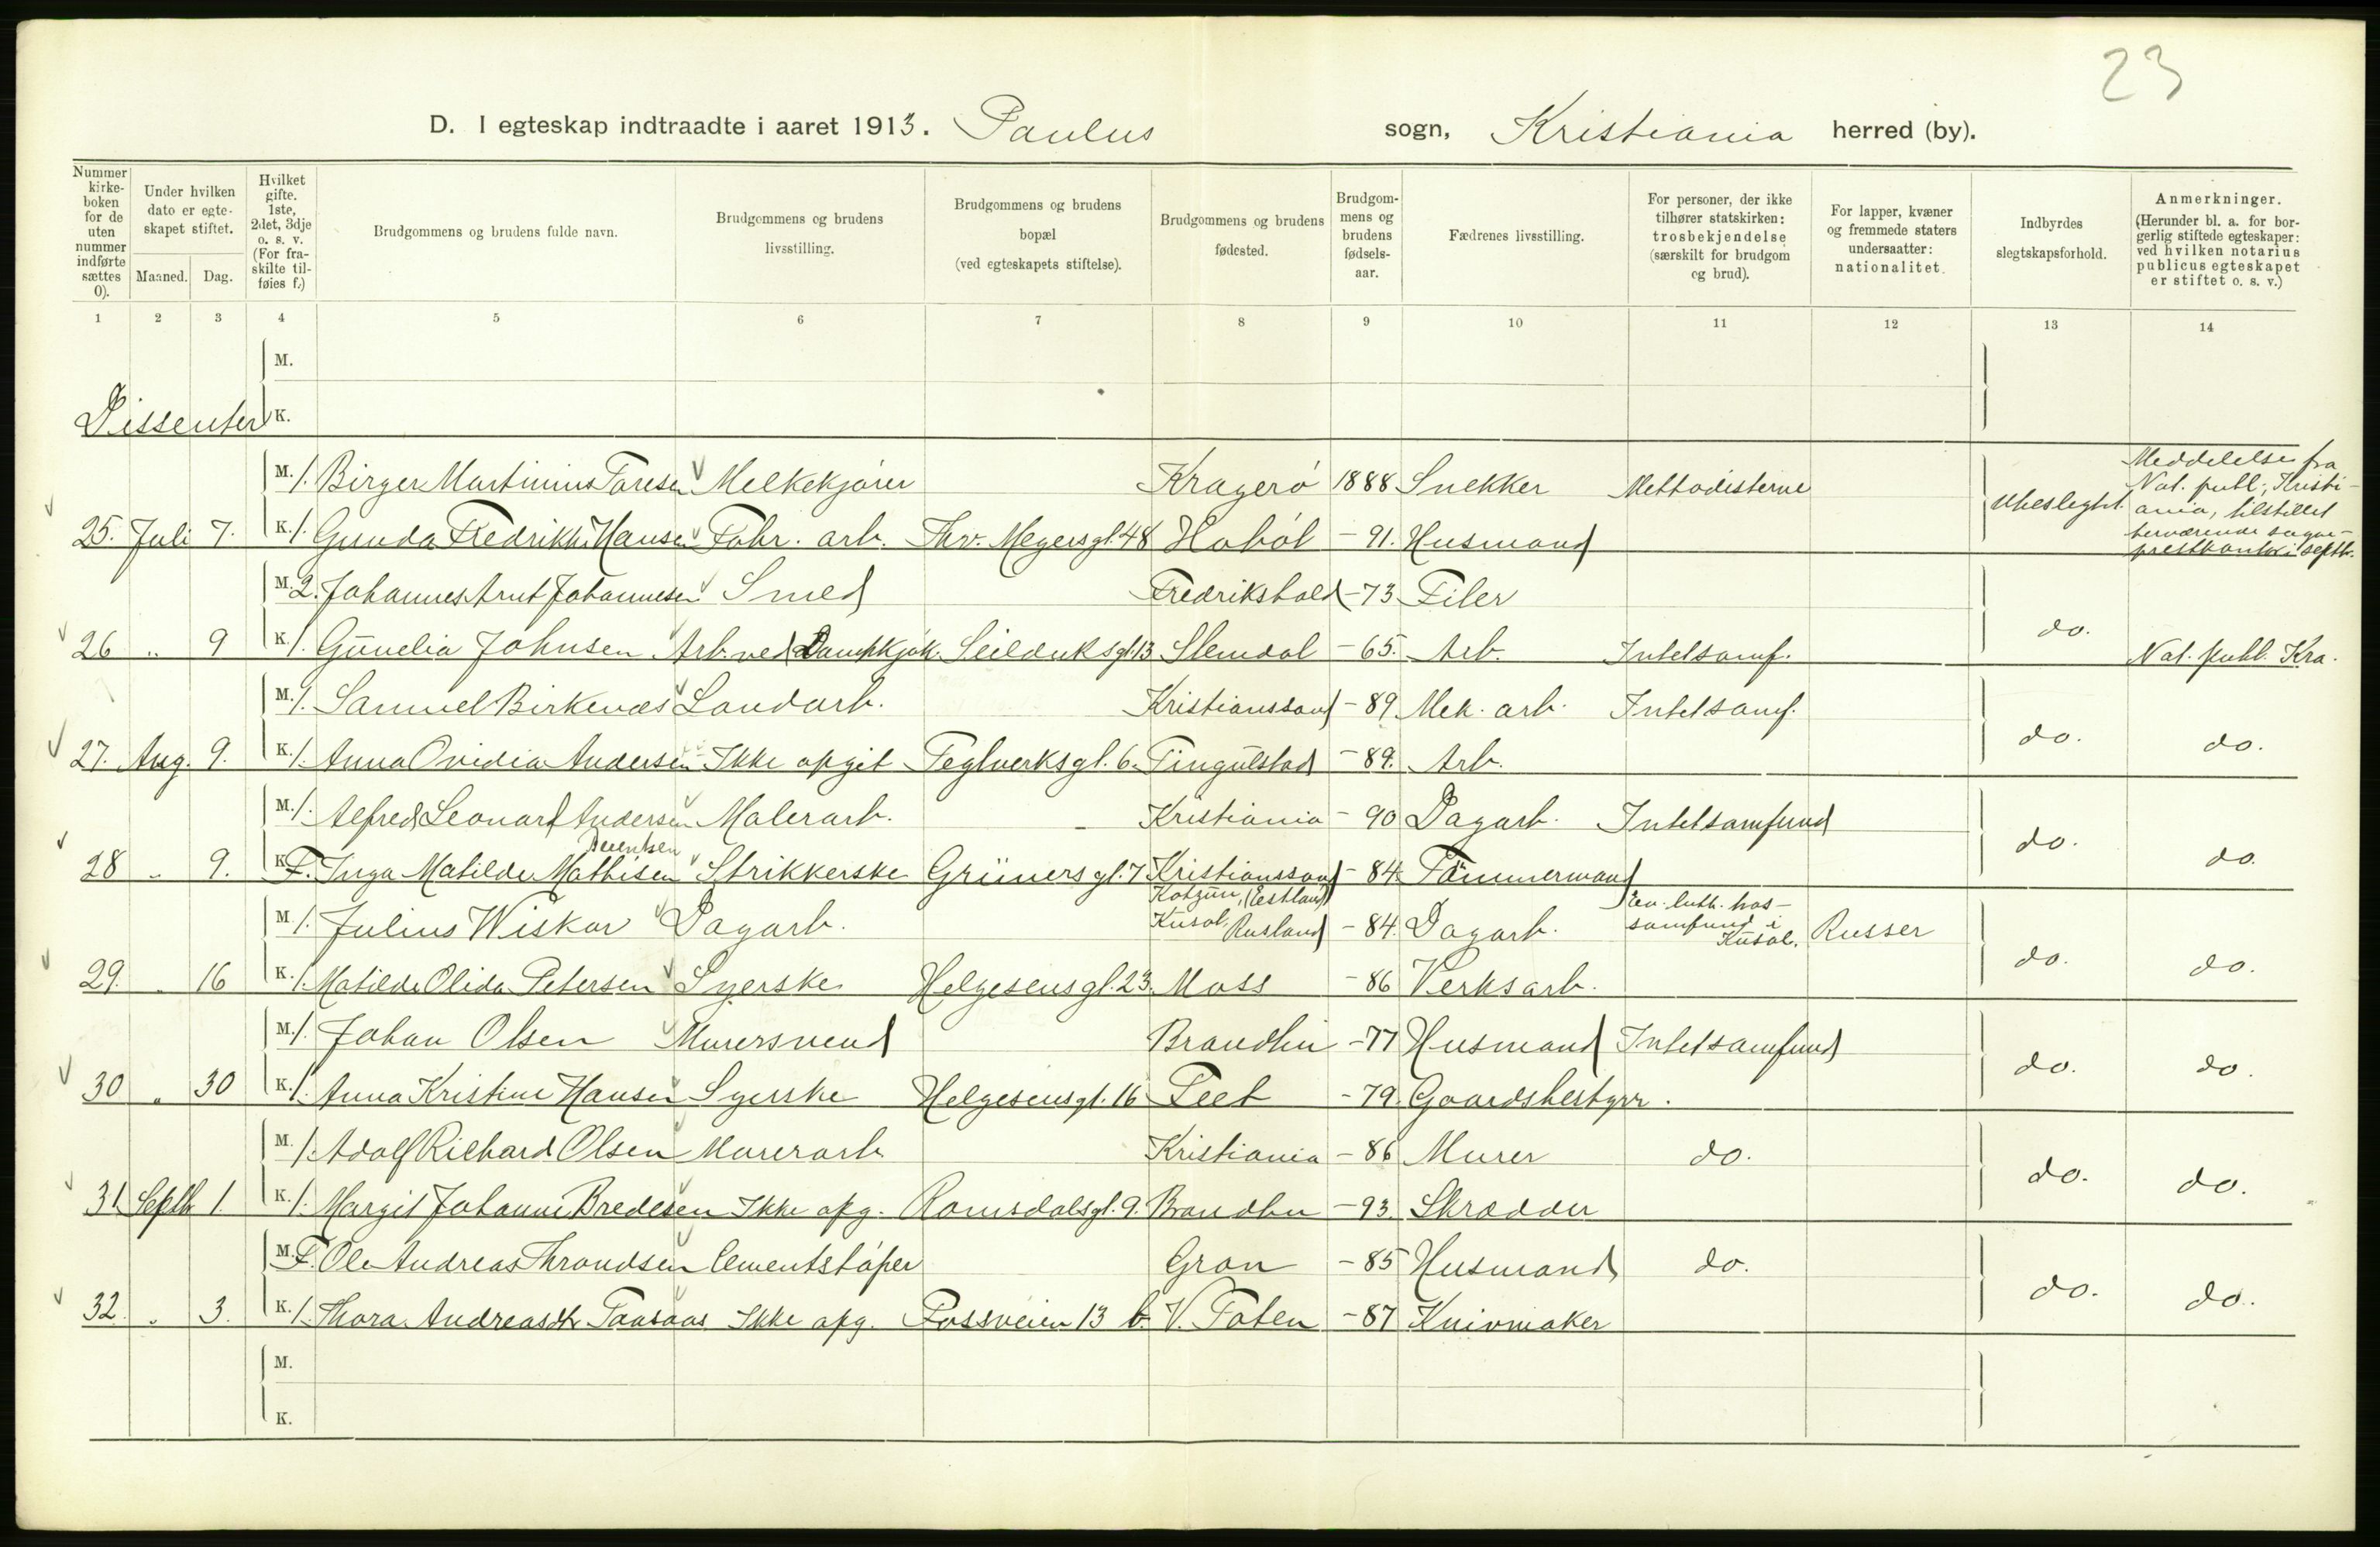 23
D. I egteskap indtraadte i aaret 1913. Paulus sogn, Kristiania herred (by).
Nummer kirkeboken for de uten nummer indførte sættes 0).
Under hvilken dato er egteskapet stiftet.
Maaned. Dag.
Hvilket gifte. 1ste, 2det, 3dje o. s. v. (For fraskilte tilføies f.)
Brudgommens og brudens fulde navn.
Brudgommens og brudens livsstilling.
Brudgommens og brudens bopæl (ved egteskapets stiftelse).
Brudgommens og brudens fødested.
Brudgommens og brudens fødselsaar.
Fædrenes livsstilling.
For personer, der ikke tilhører statskirken: trosbekjendelse (særskilt for brudgom og brud).
For lapper, kvæner og fremmede staters undersaatter: nationalitet.
Indbyrdes slegtskapsforhold.
Anmerkninger. (Herunder bl. a. for borgerlig stiftede egteskaper: ved hvilken notarius publicus egteskapet er stiftet o. s. v.)
1 2 3 4 5 6 7 8 9 10 11 12 13 14
M.
Dissenter K.
M. 1. Birger Martinius Taresen Melkekjører Kragerø 1888 Snekker Methodisterne
25. Juli 7. K. 1. Gunda Fredrikke Hansen Fabr. arb. Thv. Meyersgt. 48 Hobøl - 91. Husmand Ubeslegtet Meddelelse fra Not. publ., Kristiania, tilstillet herværende sogneprestkontor i septb.
M. 2. Johannes Arnt Johannesen Smed Fredrikshald - 73 Filer
26 " 9 K. 1. Gunelia Johnsen Arb. ved Dampkjøk. Seilduksgt. 13 Slemdal - 65. Arb. Intetsamf. do. Not. publ. Kra.
M. 1. Samuel Birkenæs Landarb. Kristianssand - 89 Mek. arb. Intetsamf.
27. Aug. 9. K. 1. Anna Ovidia Andersen Ikke opgit Teglverksgt. 6. Tingulstad - 89. Arb. do. do.
M. 1. Alfred Leonard Andersen Malerarb. Kristiania - 90 Dagarb. Intetsamfund
28 " 9. K. F. Inga Matilde Mathisen Strikkerske Grünersgt. 7 Kristianssand - 84. Tømmermand do. do.
M. 1. Julius Wiskar Dagarb. (Estland) Kusal, Rusland - 84. Dagarb. Ev. luth. trossamfund i Kusal. Russer
29. " 16 K. 1. Matilde Olida Petersen Syerske Helgesensgt. 23. Moss - 86 Verksarb. do. do.
M. 1. Johan Olsen Murersvend Brandbu - 77 Husmand Intetsamfund
30 " 30 K. 1. Anna Kristine Hansen Syerske Helgesensgt. 16 Teet - 79. Gaardsbestyrr. do. do.
M. 1. Adolf Richard Olsen Murerarb. Kristiania - 86 Murer do.
31. Septb. 1. K. 1. Margit Johanne Bredesen Ikke opg. Romsdalsgt. 9. Brandbu - 93. Skrædder do. do.
M. F. Ole Andreas Throndsen Cementstøper Gran - 85 Husmand do.
32. " 3. K. 1. Thora Andreasdtr. Taasaas Ikke opg. Fossveien 13 b. V. Toten - 87 Knivmaker do. do.
M.
K.